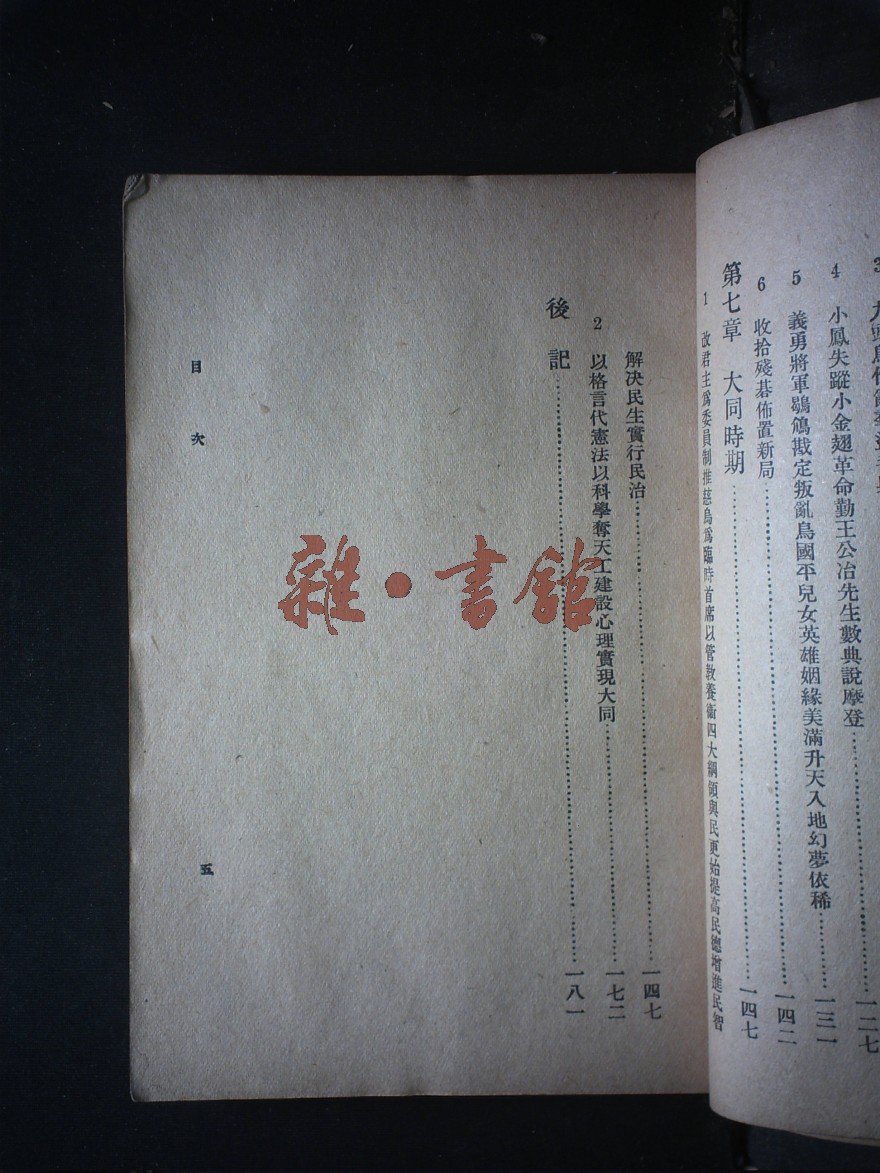 4 小鳳失蹤小金翅革命勤王公冶先生數典說摩登……一二七
5 義勇將軍鶚鴆戡定叛亂鳥國平兒女英雄姻緣美滿升天入地幻夢依稀……一三一
6 收拾殘碁佈置新局……一四二
第七章 大同時期……一四七
1 改君主爲委員制推慈烏爲臨時首席以管教養衞四大綱領與民更始提高民德增進民智
解决民生實行民治……一四七
2 以格言代憲法以科學奪天工建設心理實現大同……一七二
後記……一八一
目次
五
雜·書館